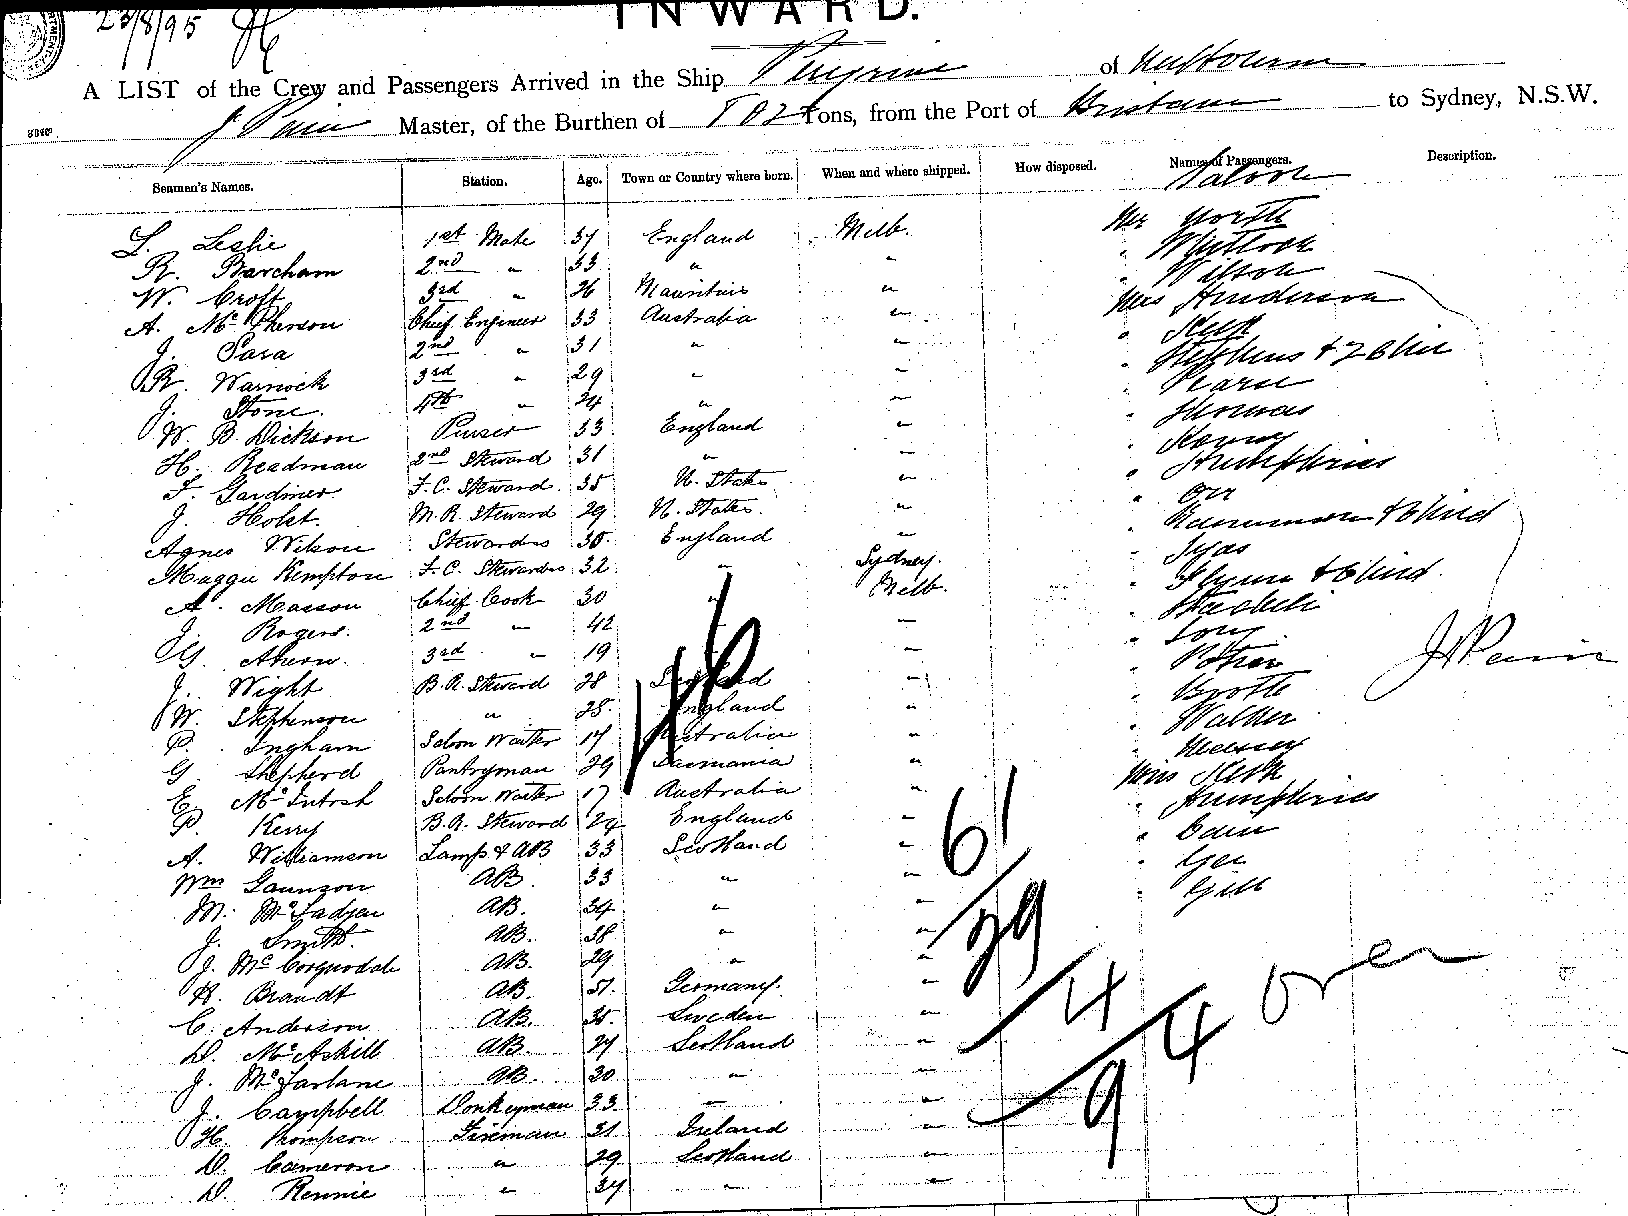 23/8/95
INWARD.
A LIST of the Crew and Passengers Arrived in the Ship Peregrine of Melbourne
J Pain Master, of the Burthen of Tons, from the Port of Brisbane to Sydney, N.S.W.
Seamen's Names. Station. Age. Town or Country where born. When and where shipped. How disposed. Names of Passengers. Description.
Saloon
L. Leslie 1st Mate 37 England Melb. Mr North
R. Barcham 2nd " 33 " " " Whitlock
W. Croft 3rd " 26 Mauritius " " Wilson
A. McPherson Chief Engineer 33 Australia " Mrs Henderson
J. Sara 2nd " 31 " " "
R. Warnock 3rd " 29 " " " Stephens & 2 Chil
J. Stone. 4th " 24 " " " Pearse
W. B. Dickson Purser 33 England " " Thomas
H. Readman 2nd Steward 31 " " "
F. Gardiner F.C. Steward 35 U. States " " Humphries
J. Holst. M.R. Steward 29 U. States. " " Orr
Agnes Wilson Stewardess 30 England " " & Child
Maggie Kempton F.C. Stewardess 32 " Sydney. "
A. Masson Chief Cook 30 " Melb. " Flynn & Child.
J. Rogers. 2nd " 42 " "
G. Ahern. 3rd " 19 " "
J. Wight B.R. Steward 28 " "
W. Stephenson " 28 England " "
P. Ingham Saloon Waiter 17 Australia " " Walker
G. Shepherd Pantryman 29 Tasmania " "
E. McIntosh Saloon Waiter 17 Australia " Miss
P. Kerry B.R. Steward 24 England " " Humphries
A. Williamson Lamps & AB 33 Scotland " "
Wm Gaunson AB. 33 " " "
M. McFadyen AB. 34 " " " Gill
J. Smith. AB. 38 " "
J. McCorquodale AB. 29 " "
H. Brandt AB. 51. Germany. "
C. Anderson AB. Sweden "
D. McAskill AB. 27 Scotland "
J. McFarlane AB. 30 " "
J. Campbell Donkeyman 33 " "
H. Thompson Fireman 31 Ireland "
D. Cameron " 29 Scotland "
D. Rennie " 34 " "
J Pain
61
29
4
94
over